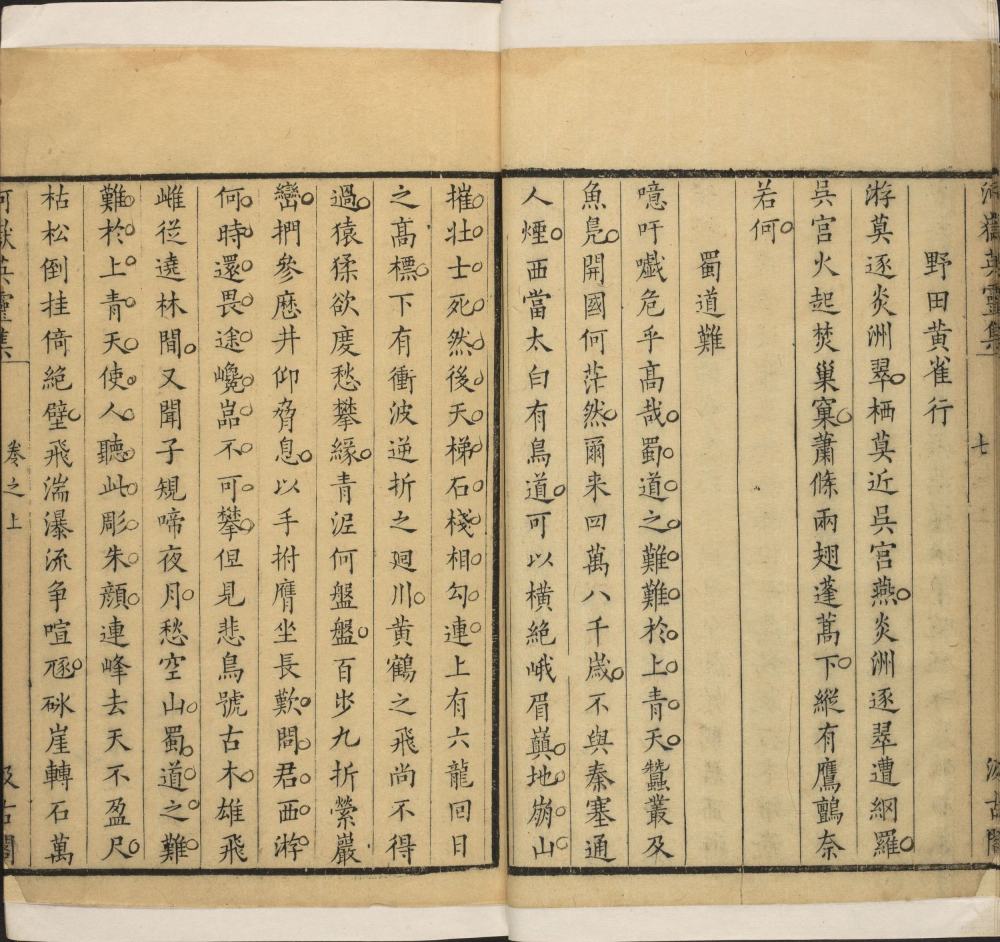 河嶽英靈集
七
汲古閣
野田黃雀行
游莫逐炎洲翠栖莫近吳宮燕炎洲逐翠遭網羅
吳宮火起焚巢窠蕭條兩翅蓬蒿下縱有鷹鸇奈
若何
蜀道難
噫吁嚱危乎髙哉蜀道之難難於上青天蠶叢及
魚鳧開國何茫然爾来四萬八千歳不與秦塞通
人煙西當太白有鳥道可以橫絶峨眉巔地崩山
摧壮士死然後天梯石棧相勾連上有六龍回日
之髙標下有衝波逆折之廻川黄鶴之飛尚不得
過猿猱欲度愁攀緣青泥何盤盤百步九折縈巖
巒捫參歴井仰脅息以手拊膺坐長歎問君西游
何時還畏途巉嵓不可攀但見悲鳥號古木雄飛
雌從遶林間又聞子規啼夜月愁空山蜀道之難
難於上青天使人聽此彫朱顔連峰去天不盈尺
枯松倒挂倚絶壁飛湍瀑流争喧豗砯崖轉石萬
河嶽英靈集
卷之上
汲古閣